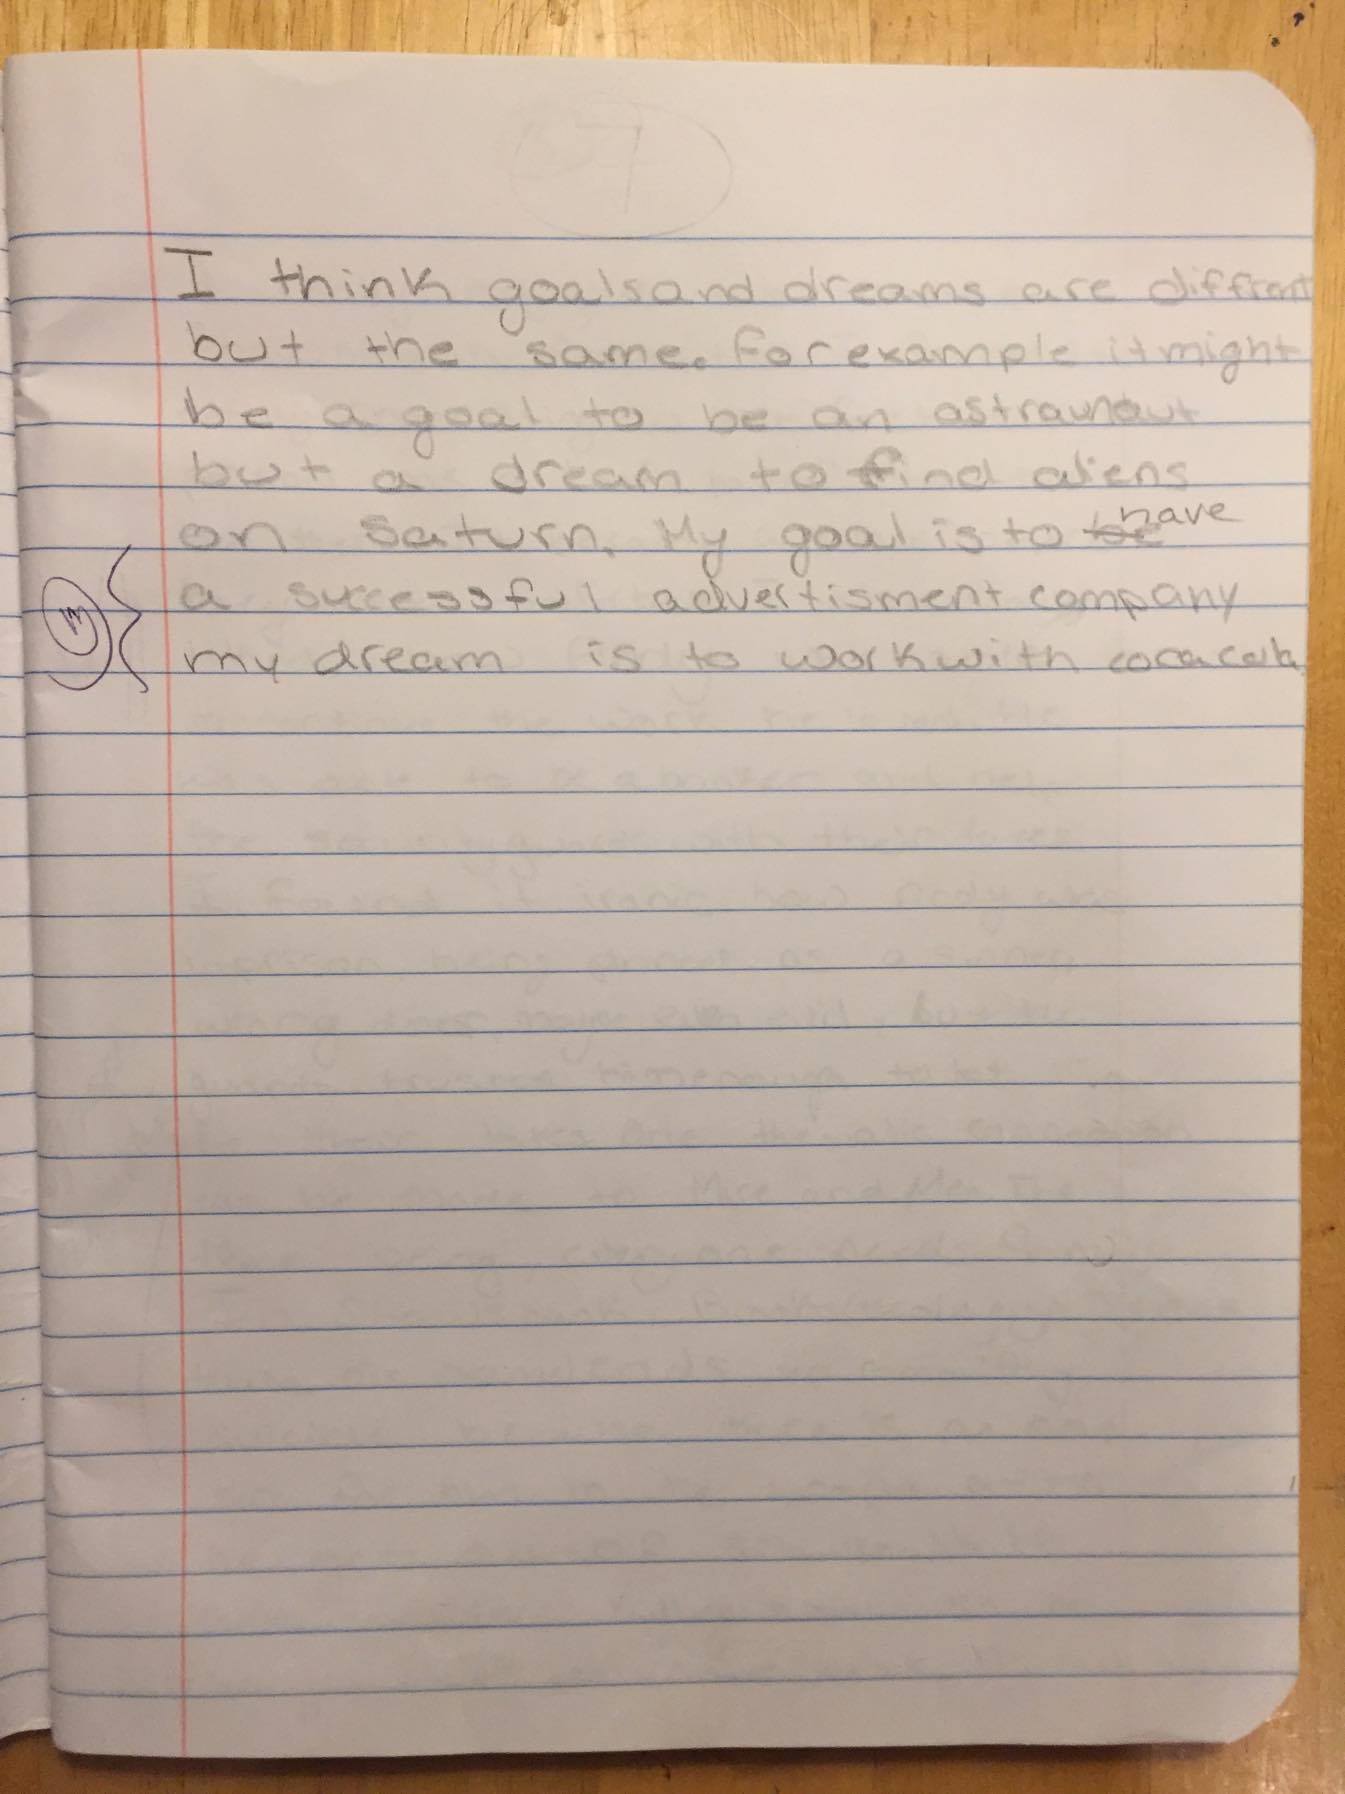 7
I think goals and dreams are diffrent
but the same. For example it might
be a goal to be an astraunout
but a dream to find aliens
on Saturn. My goal is to be have
a sucessful advertisment company
my dream is to work with coca cola